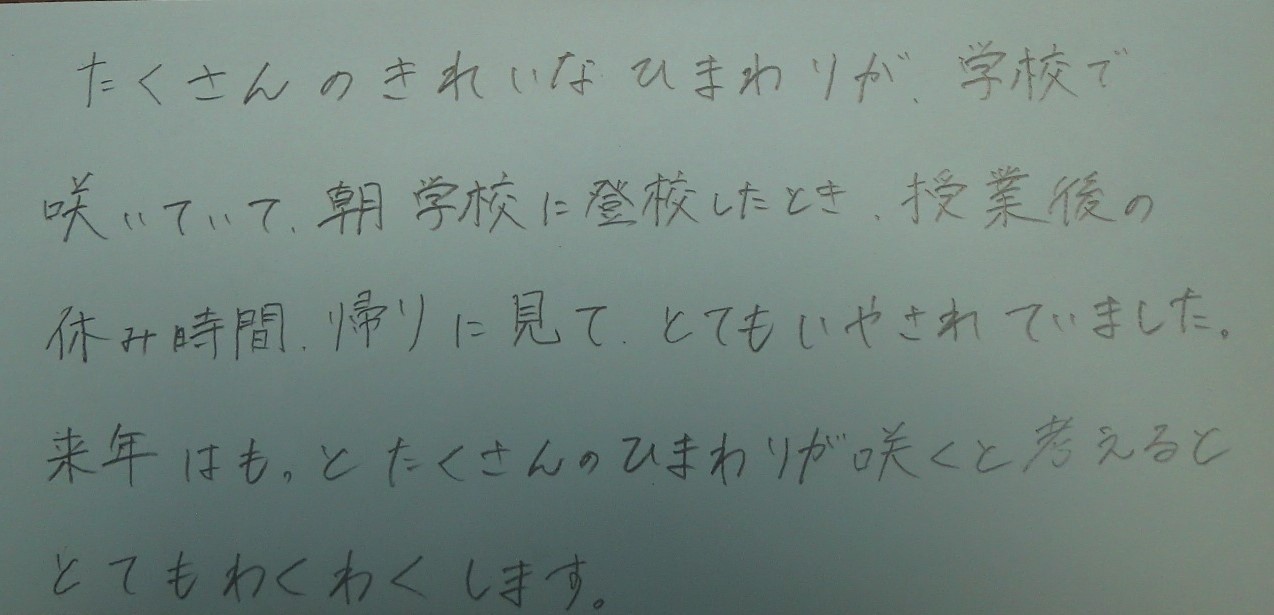 たくさんのきれいなひまわりが、学校で
咲いていて、朝学校に登校したとき、授業後の
休み時間、帰りに見て、とてもいやされていました。
来年はもっとたくさんのひまわりが咲くと考えると
とてもわくわくします。